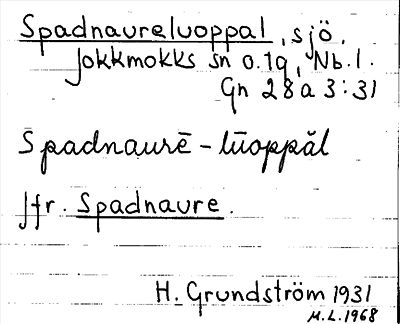 Spadnaureluoppal, sjö.
Jokkmokks sn o. lq, Nb. l.
Gn 28 a 3:31
Spadnaurē - lūoppăl
Jfr. Spadnaure.
H. Grundström 1931
M.L. 1968